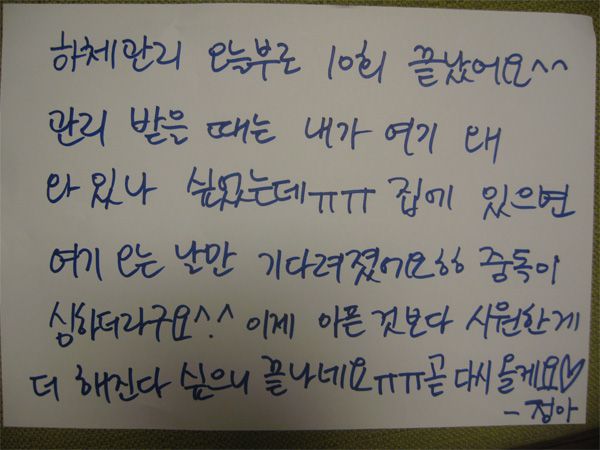 하체관리 오늘부로 10회 끝났어요^^
관리 받을 때는 내가 여기 왜
와 있나 싶었는데ㅠㅠ 집에 있으면
여기 오는 날만 기다려졌어요ㅎㅎ 중독이
심하더라구요^.^ 이제 아픈 것보다 시원한게
더 해진다 싶으니 끝나네요ㅠㅠ곧 다시 올게요♡
- 정아